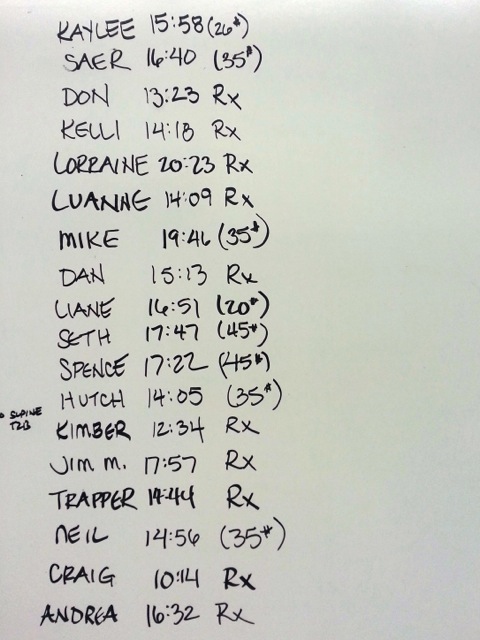 KAYLEE 15:58 (26#)
SAER 16:40 (35#)
DON 13:23 Rx
KELLI 14:18 Rx
LORRAINE 20:23 Rx
LUANNE 14:09 Rx
MIKE 19:46 (35#)
DAN 15:13 Rx
LIANE 16:51 (20#)
SETH 17:47 (45#)
SPENCE 17:22 (45#)
HUTCH 14:05 (35#)
SUPINE
T2B
KIMBER 12:34 Rx
JIM M. 17:57 Rx
TRAPPER 14:44 Rx
NEIL 14:56 (35#)
CRAIG 10:14 Rx
ANDREA 16:32 Rx